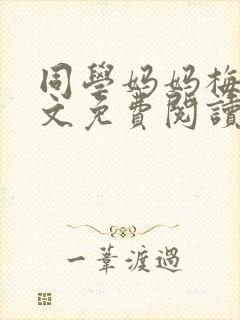 同學妈妈梅
文免費閱讀
一葦渡過